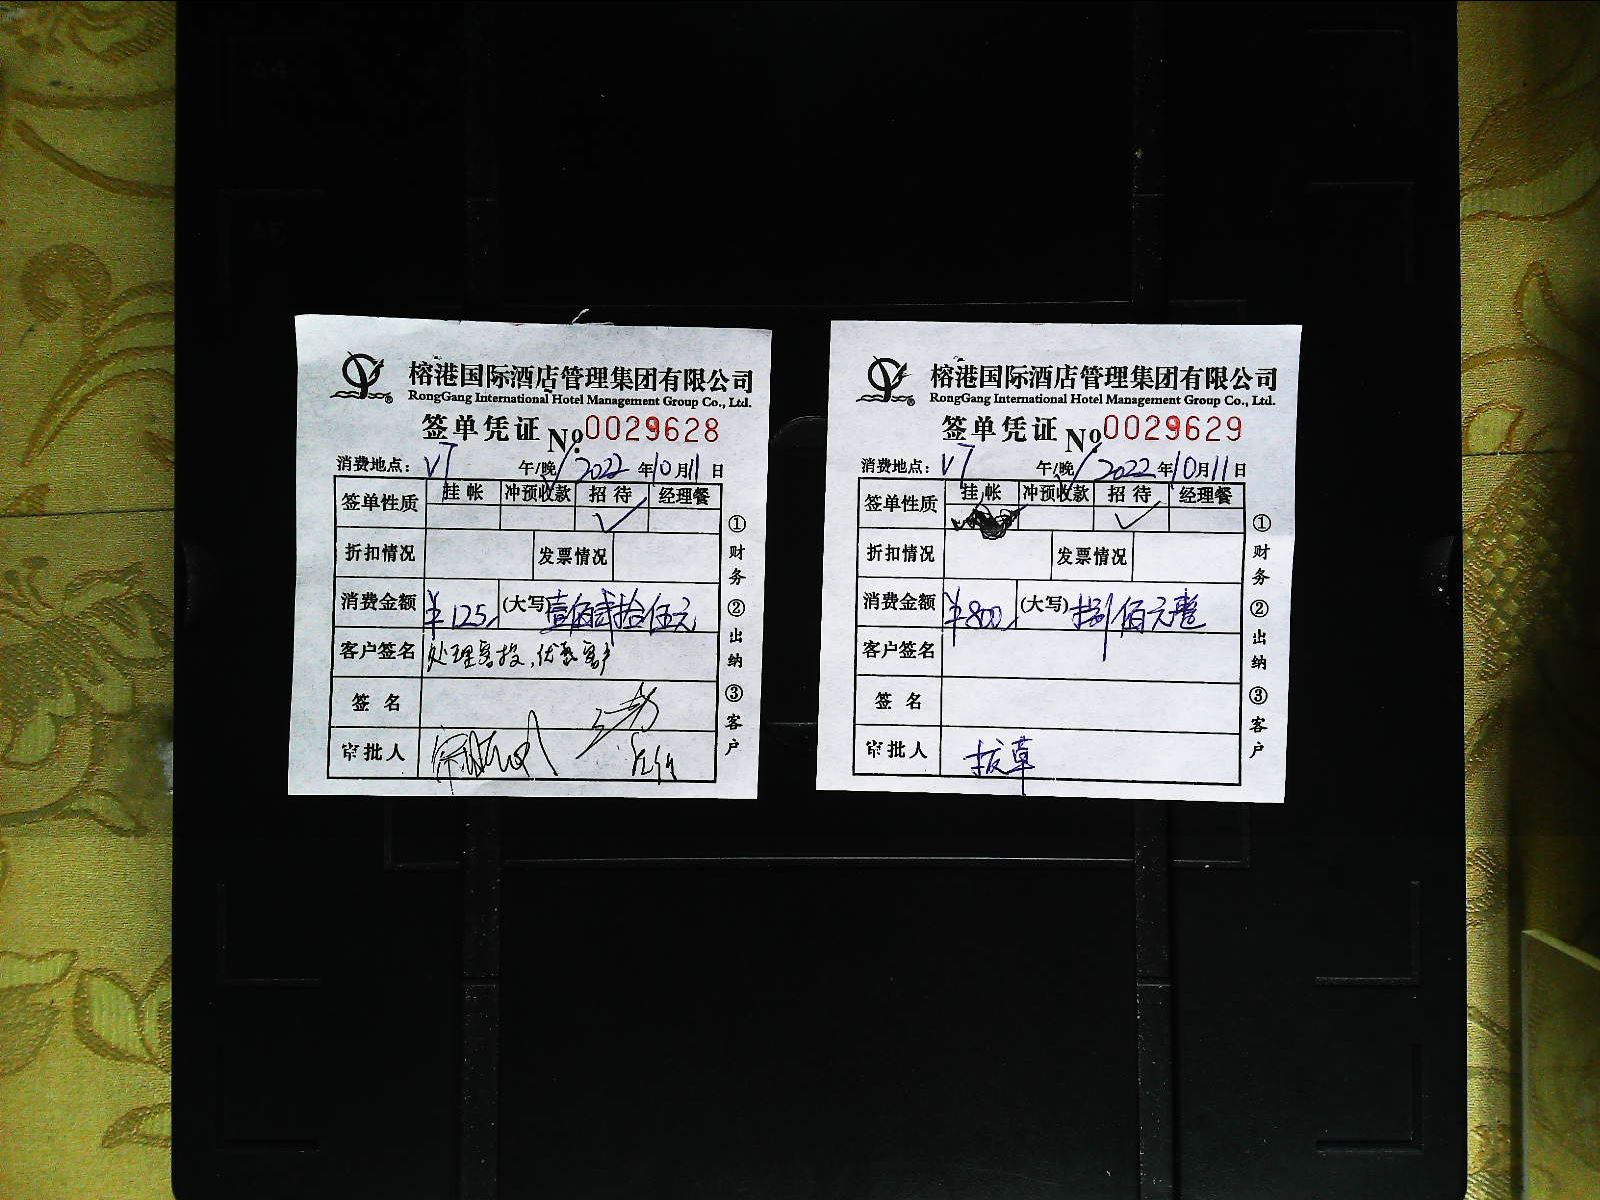 榕港国际酒店管理集团有限公司
RongGang International Hotel Management Group Co., Ltd.
签单凭证 №0029628
消费地点: V7 午/晚 2022 年 10 月 11 日
签单性质 挂帐 冲预收款 招待 经理餐
✓
折扣情况 发票情况
消费金额 ¥125 (大写) 壹佰贰拾伍元
客户签名 处理客投,优惠客户
签名
审批人
①财务 ②出纳 ③客户
榕港国际酒店管理集团有限公司
RongGang International Hotel Management Group Co., Ltd.
签单凭证 №0029629
消费地点: V7 午/晚 2022 年 10 月 11 日
签单性质 挂帐 冲预收款 招待 经理餐
✓
折扣情况 发票情况
消费金额 ¥800 (大写) 捌佰元整
客户签名
签名
审批人 拔草
①财务 ②出纳 ③客户